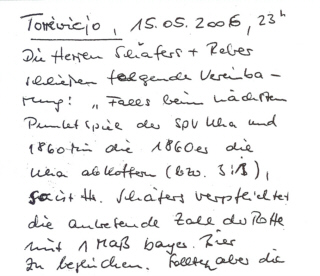 Torrevieja, 15.05.2006, 23h
Die Herren Schäfers + Reber
schließen folgende Vereinba-
rung: „Falls beim nächsten
Punktspiel der SpV Uha und
1860 die 1860er die
Uha (bzw. 3:1),
so ist Hr. Schäfers verpflichtet
die antretende Zahl der Rotte
mit 1 Maß bayer. Bier
zu begleichen. Sollten aber die